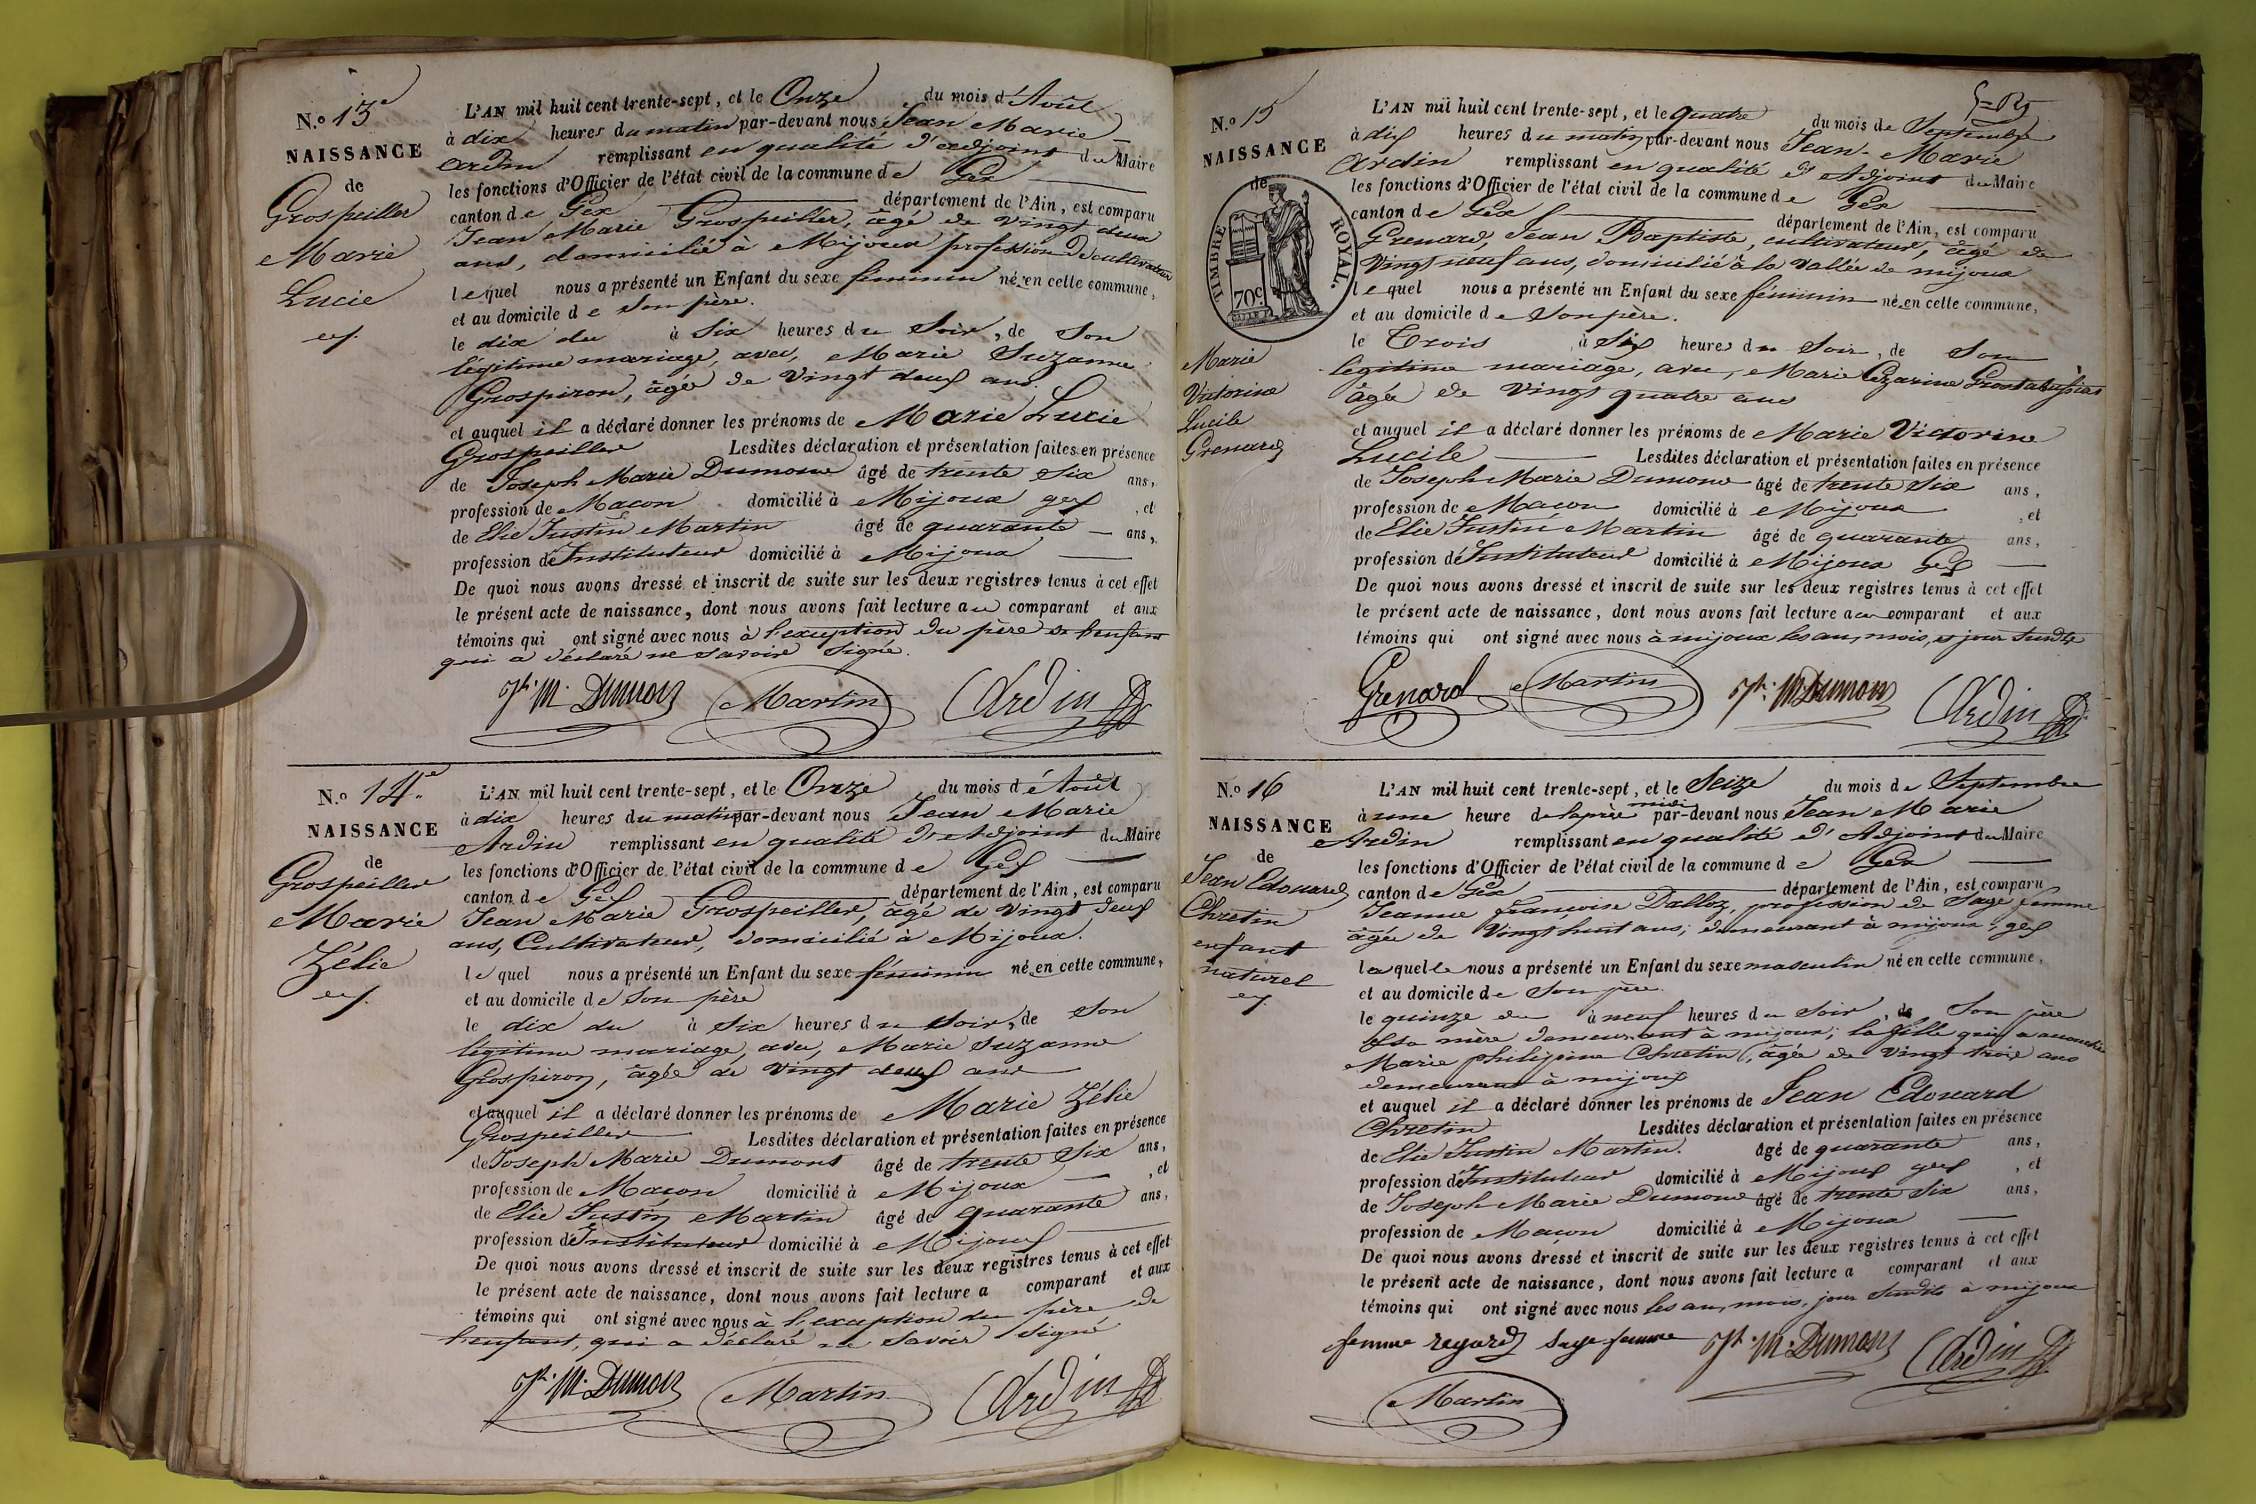 N.o 13e
NAISSANCE
de
Grospeiller
Marie
Lucie
L'AN mil huit cent trente-sept, et le Onze du mois d'Août
à dix heures du matin par-devant nous Jean Marie
Ardin remplissant en qualité d'adjoint du Maire
les fonctions d'Officier de l'état civil de la commune de Gex
canton de Gex département de l'Ain, est comparu
Jean Marie Grospeiller, âgé de vingt deux
ans, domicilié à Mijoux profession de cultivateur
lequel nous a présenté un Enfant du sexe féminin né en cette commune,
et au domicile de son père.
le dix du à Six heures du Soir, de Son
légitime mariage, avec, Marie Suzanne
Grospiron, âgée de vingt deux ans.
et auquel il a déclaré donner les prénoms de Marie Lucie
Grospeiller Lesdites déclaration et présentation faites en présence
de Joseph Marie Dumont âgé de trente Six ans,
profession de Macon domicilié à Mijoux gex, et
de Elie Justin Martin âgé de quarante ans,
profession de Instituteur domicilié à Mijoux
De quoi nous avons dressé et inscrit de suite sur les deux registres tenus à cet effet
le présent acte de naissance, dont nous avons fait lecture au comparant et aux
témoins qui ont signé avec nous à l'exception du père de l'enfant
qui a déclaré ne savoir Signé.
Jh. M. Dumont Martin Ardin
N.o 14e
NAISSANCE
de
Grospeiller
Marie
Zélie
L'AN mil huit cent trente-sept, et le Onze du mois d'Août
à dix heures du matin par-devant nous Jean Marie
Ardin remplissant en qualité d'Adjoint du Maire
les fonctions d'Officier de l'état civil de la commune de Gex
canton de Gex département de l'Ain, est comparu
Jean Marie Grospeiller, âgé de vingt deux
ans, Cultivateur, domicilié à Mijoux.
lequel nous a présenté un Enfant du sexe féminin né en cette commune,
et au domicile de Son père
le dix du à Six heures du Soir, de Son
légitime mariage, avec, Marie Suzanne
Grospiron, âgée de vingt deux ans
et auquel il a déclaré donner les prénoms de Marie Zélie
Grospeiller Lesdites déclaration et présentation faites en présence
de Joseph Marie Dumont âgé de trente Six ans,
profession de Macon domicilié à Mijoux, et
de Elie Justin Martin âgé de quarante ans,
profession de Instituteur domicilié à Mijoux
De quoi nous avons dressé et inscrit de suite sur les deux registres tenus à cet effet
le présent acte de naissance, dont nous avons fait lecture a comparant et aux
témoins qui ont signé avec nous à l'exception du père de
l'enfant, qui a déclaré ne Savoir Signé
Jh. M. Dumont Martin Ardin
N.o 15
NAISSANCE
de
TIMBRE ROYAL.
70c.
Marie
Victorine
Lucile
Grenard
L'AN mil huit cent trente-sept, et le quatre du mois de Septembre
à dix heures du matin par-devant nous Jean-Marie
Ardin remplissant en qualité d'Adjoint du Maire
les fonctions d'Officier de l'état civil de la commune de Gex
canton de Gex département de l'Ain, est comparu
Grenard, Jean Baptiste, cultivateur, âgé de
vingt neuf ans, domicilié à la vallée de mijoux
lequel nous a présenté un Enfant du sexe féminin né en cette commune,
et au domicile de Son père.
le Trois à Six heures du Soir, de Son
légitime mariage, avec, Marie Cézarine
âgée de vingt quatre ans
et auquel il a déclaré donner les prénoms de Marie Victorine
Lucile Lesdites déclaration et présentation faites en présence
de Joseph Marie Dumont âgé de trente Six ans,
profession de Macon domicilié à Mijoux, et
de Elie Justin Martin âgé de quarante ans,
profession de Instituteur domicilié à Mijoux Gex
De quoi nous avons dressé et inscrit de suite sur les deux registres tenus à cet effet
le présent acte de naissance, dont nous avons fait lecture au comparant et aux
témoins qui ont signé avec nous à mijoux les an, mois, et jour Susdits
Grenard Martin Jh. M. Dumont Ardin
N.o 16
NAISSANCE
de
Jean Edouard
Chretin
enfant
naturel
L'AN mil huit cent trente-sept, et le Seize du mois de Septembre
à une heure de laprès midi par-devant nous Jean Marie
Ardin remplissant en qualité d'Adjoint du Maire
les fonctions d'Officier de l'état civil de la commune de Gex
canton de Gex département de l'Ain, est comparu
Jeanne françoise Dalloz, profession de Sage femme
âgée de vingt huit ans, demeurant à mijoux, gex
laquelle nous a présenté un Enfant du sexe masculin né en cette commune,
et au domicile de Son père.
le quinze du à neuf heures du Soir, de Son père
et sa mère demeurant à mijoux; la fille qui a accouchée
Marie philigène Chretin, âgée de vingt trois ans
demeurant à mijoux
et auquel il a déclaré donner les prénoms de Jean Edouard
Chretin Lesdites déclaration et présentation faites en présence
de Elie Justin Martin. âgé de quarante ans,
profession de Instituteur domicilié à Mijoux gex, et
de Joseph Marie Dumont âgé de trente Six ans,
profession de Macon domicilié à Mijoux
De quoi nous avons dressé et inscrit de suite sur les deux registres tenus à cet effet
le présent acte de naissance, dont nous avons fait lecture a comparant et aux
témoins qui ont signé avec nous les an, mois, jour Susdits à mijoux
femme regard Sage femme Jh. M. Dumont Ardin
Martin